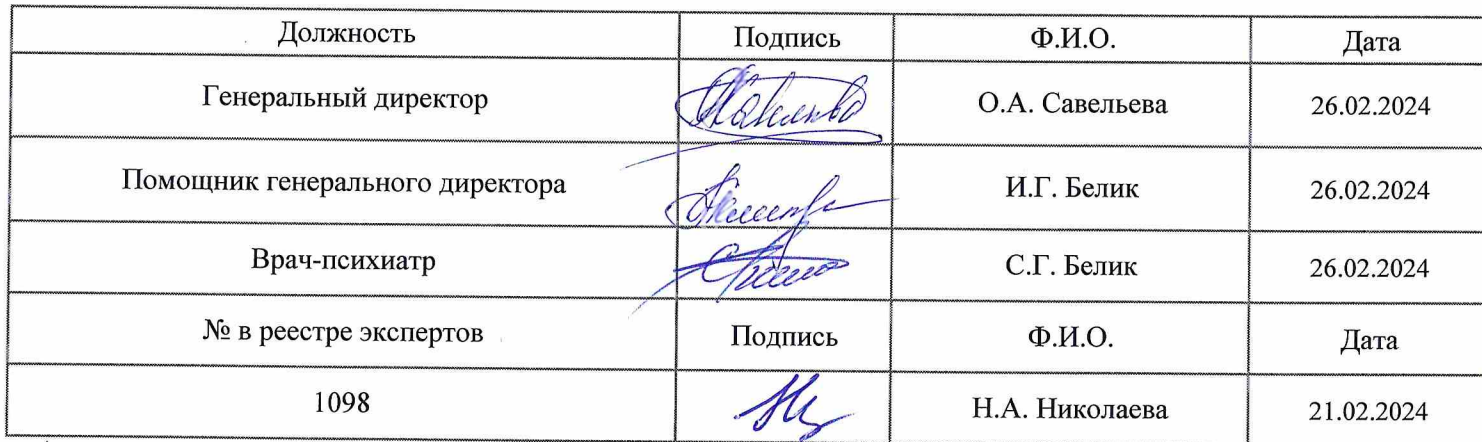 Должность Подпись Ф.И.О. Дата
Генеральный директор О.А. Савельева 26.02.2024
Помощник генерального директора И.Г. Белик 26.02.2024
Врач-психиатр С.Г. Белик 26.02.2024
№ в реестре экспертов Подпись Ф.И.О. Дата
1098 Н.А. Николаева 21.02.2024